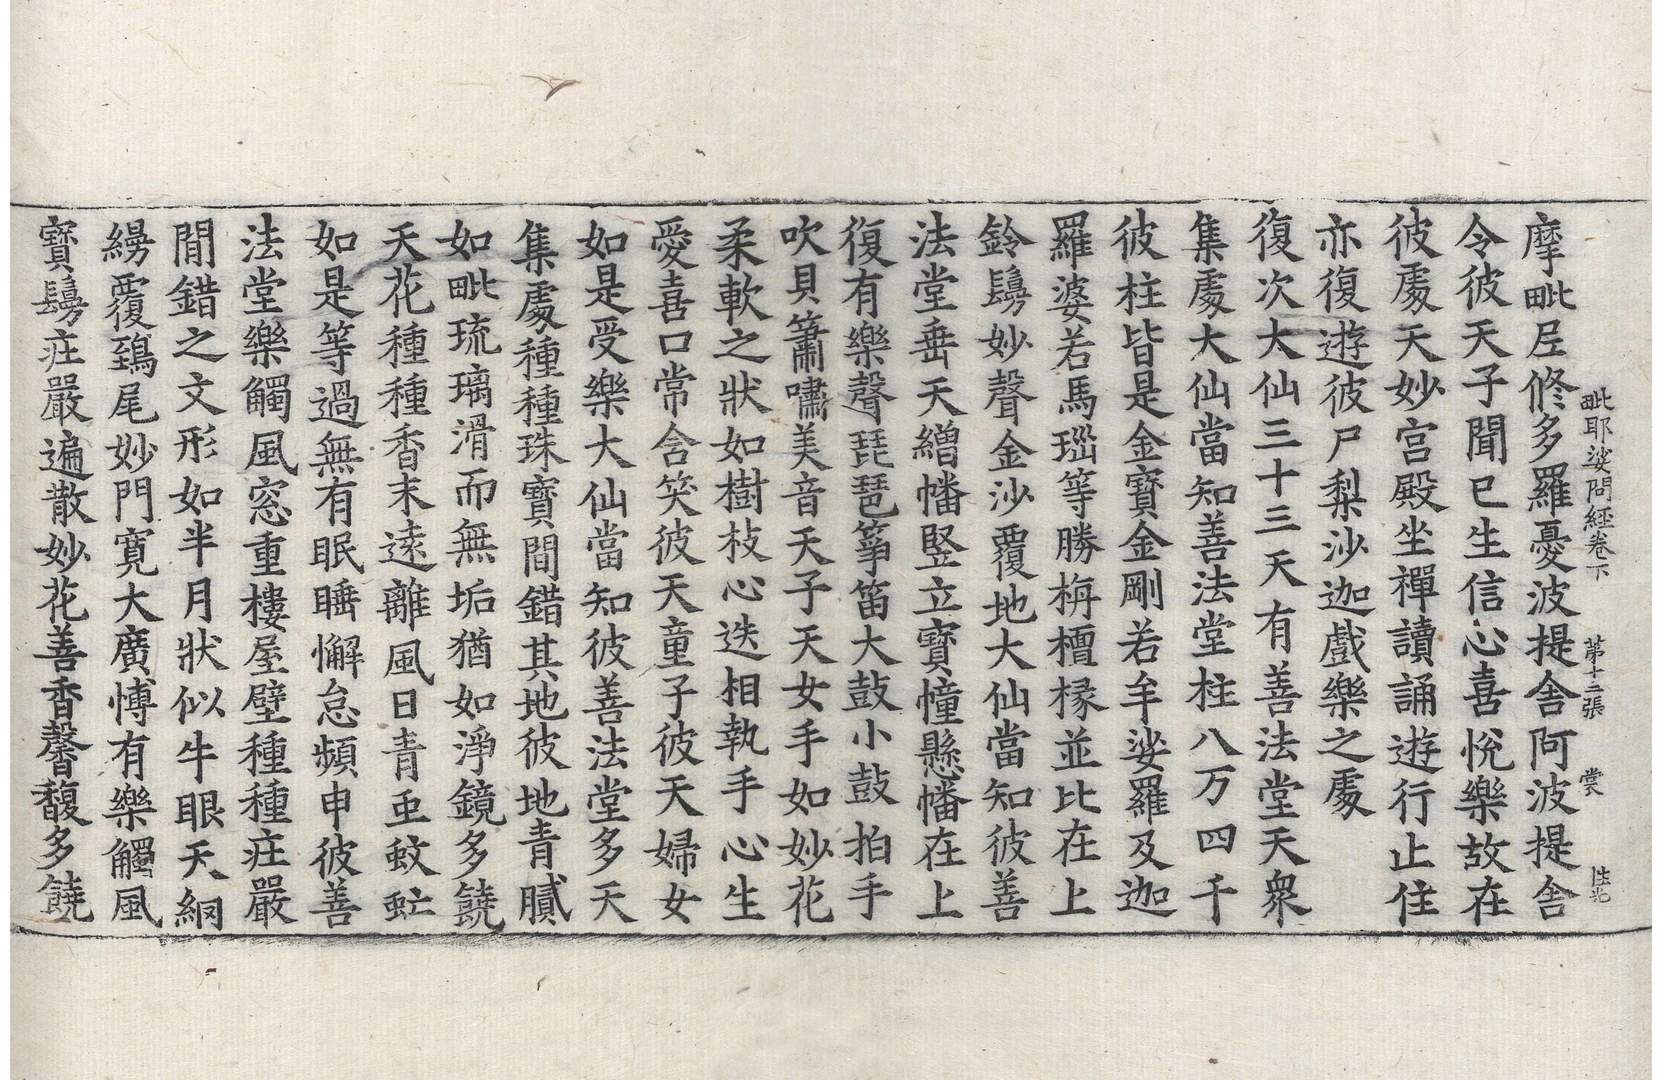 毗耶娑問經卷下 第十二張 裳
摩毗𡰱修多羅憂波提舍阿波提舍
令彼天子聞已生信心喜悅樂故在
彼處天妙宫殿坐禪讀誦遊行止住
亦復遊彼尸梨沙迦戲樂之處
復次大仙三十三天有善法堂天衆
集處大仙當知善法堂柱八万四千
彼柱皆是金寶金剛若牟娑羅及迦
羅婆若馬瑙等勝栴檀椽並比在上
鈴鬘妙聲金沙覆地大仙當知彼善
法堂垂天繒幡竪立寶幢懸幡在上
復有樂聲琵琶箏笛大鼓小鼓拍手
吹貝簫嘯美音天子天女手如妙花
柔軟之狀如樹枝心迭相執手心生
愛喜口常含笑彼天童子彼天婦女
如是受樂大仙當知彼善法堂多天
集處種種珠寶間錯其地彼地青膩
如毗琉璃滑而無垢猶如淨鏡多饒
天花種種香末遠離風日青䖝蚊虻
如是等過無有眠睡懈怠頻申彼善
法堂樂觸風窓重樓屋壁種種庄嚴
間錯之文形如半月狀似牛眼天網
縵覆鵄尾妙門寬大廣博有樂觸風
寳鬘庄嚴遍散妙花善香馨馥多饒